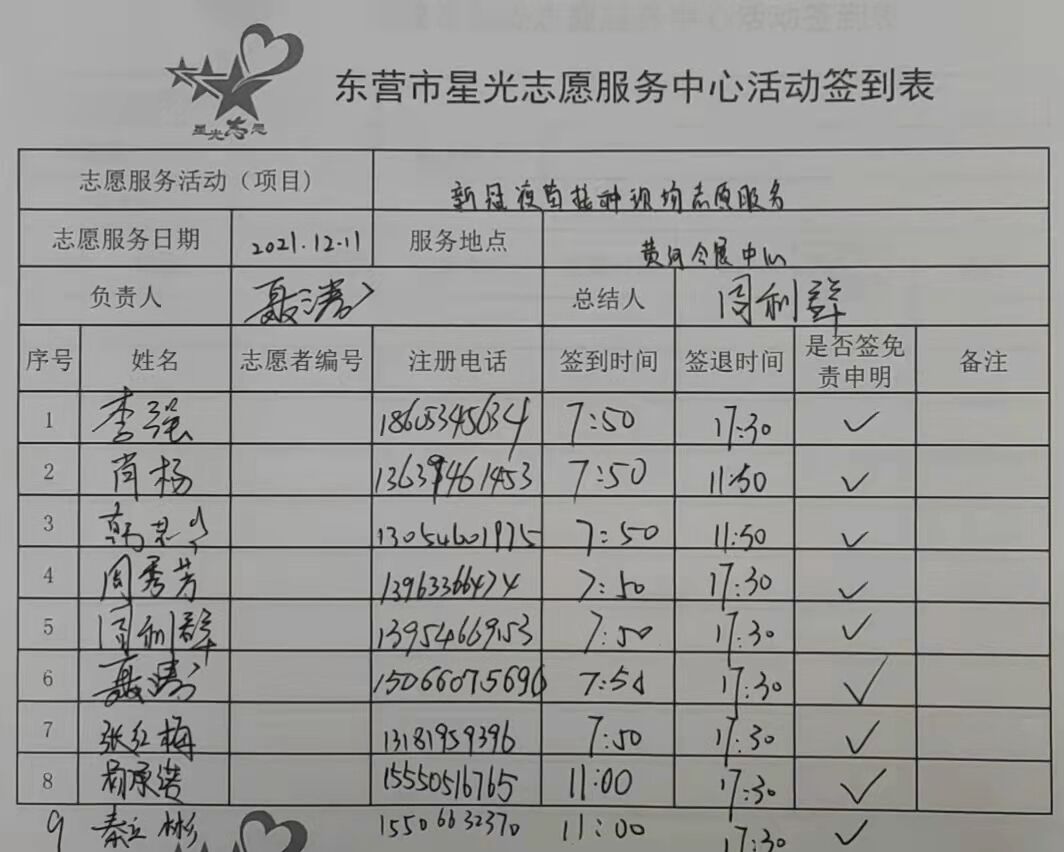 星光志愿
东营市星光志愿服务中心活动签到表
志愿服务活动（项目） 新冠疫苗接种现场志愿服务
志愿服务日期 2021.12.11 服务地点 黄河会展中心
负责人 聂涛 总结人 周利群
序号 姓名 志愿者编号 注册电话 签到时间 签退时间 是否签免责申明 备注
1 李强 18605345634 7:50 17:30 ✓
2 肖杨 13639461453 7:50 11:50 ✓
3 13054601975 7:50 11:50 ✓
4 周秀芳 13963366474 7:50 17:30 ✓
5 周利群 13954669153 7:50 17:30 ✓
6 聂涛 15066075696 7:50 17:30 ✓
7 张红梅 13181959396 7:50 17:30 ✓
8 15550516765 11:00 17:30 ✓
9 秦立彬 15506632370 11:00 17:30 ✓